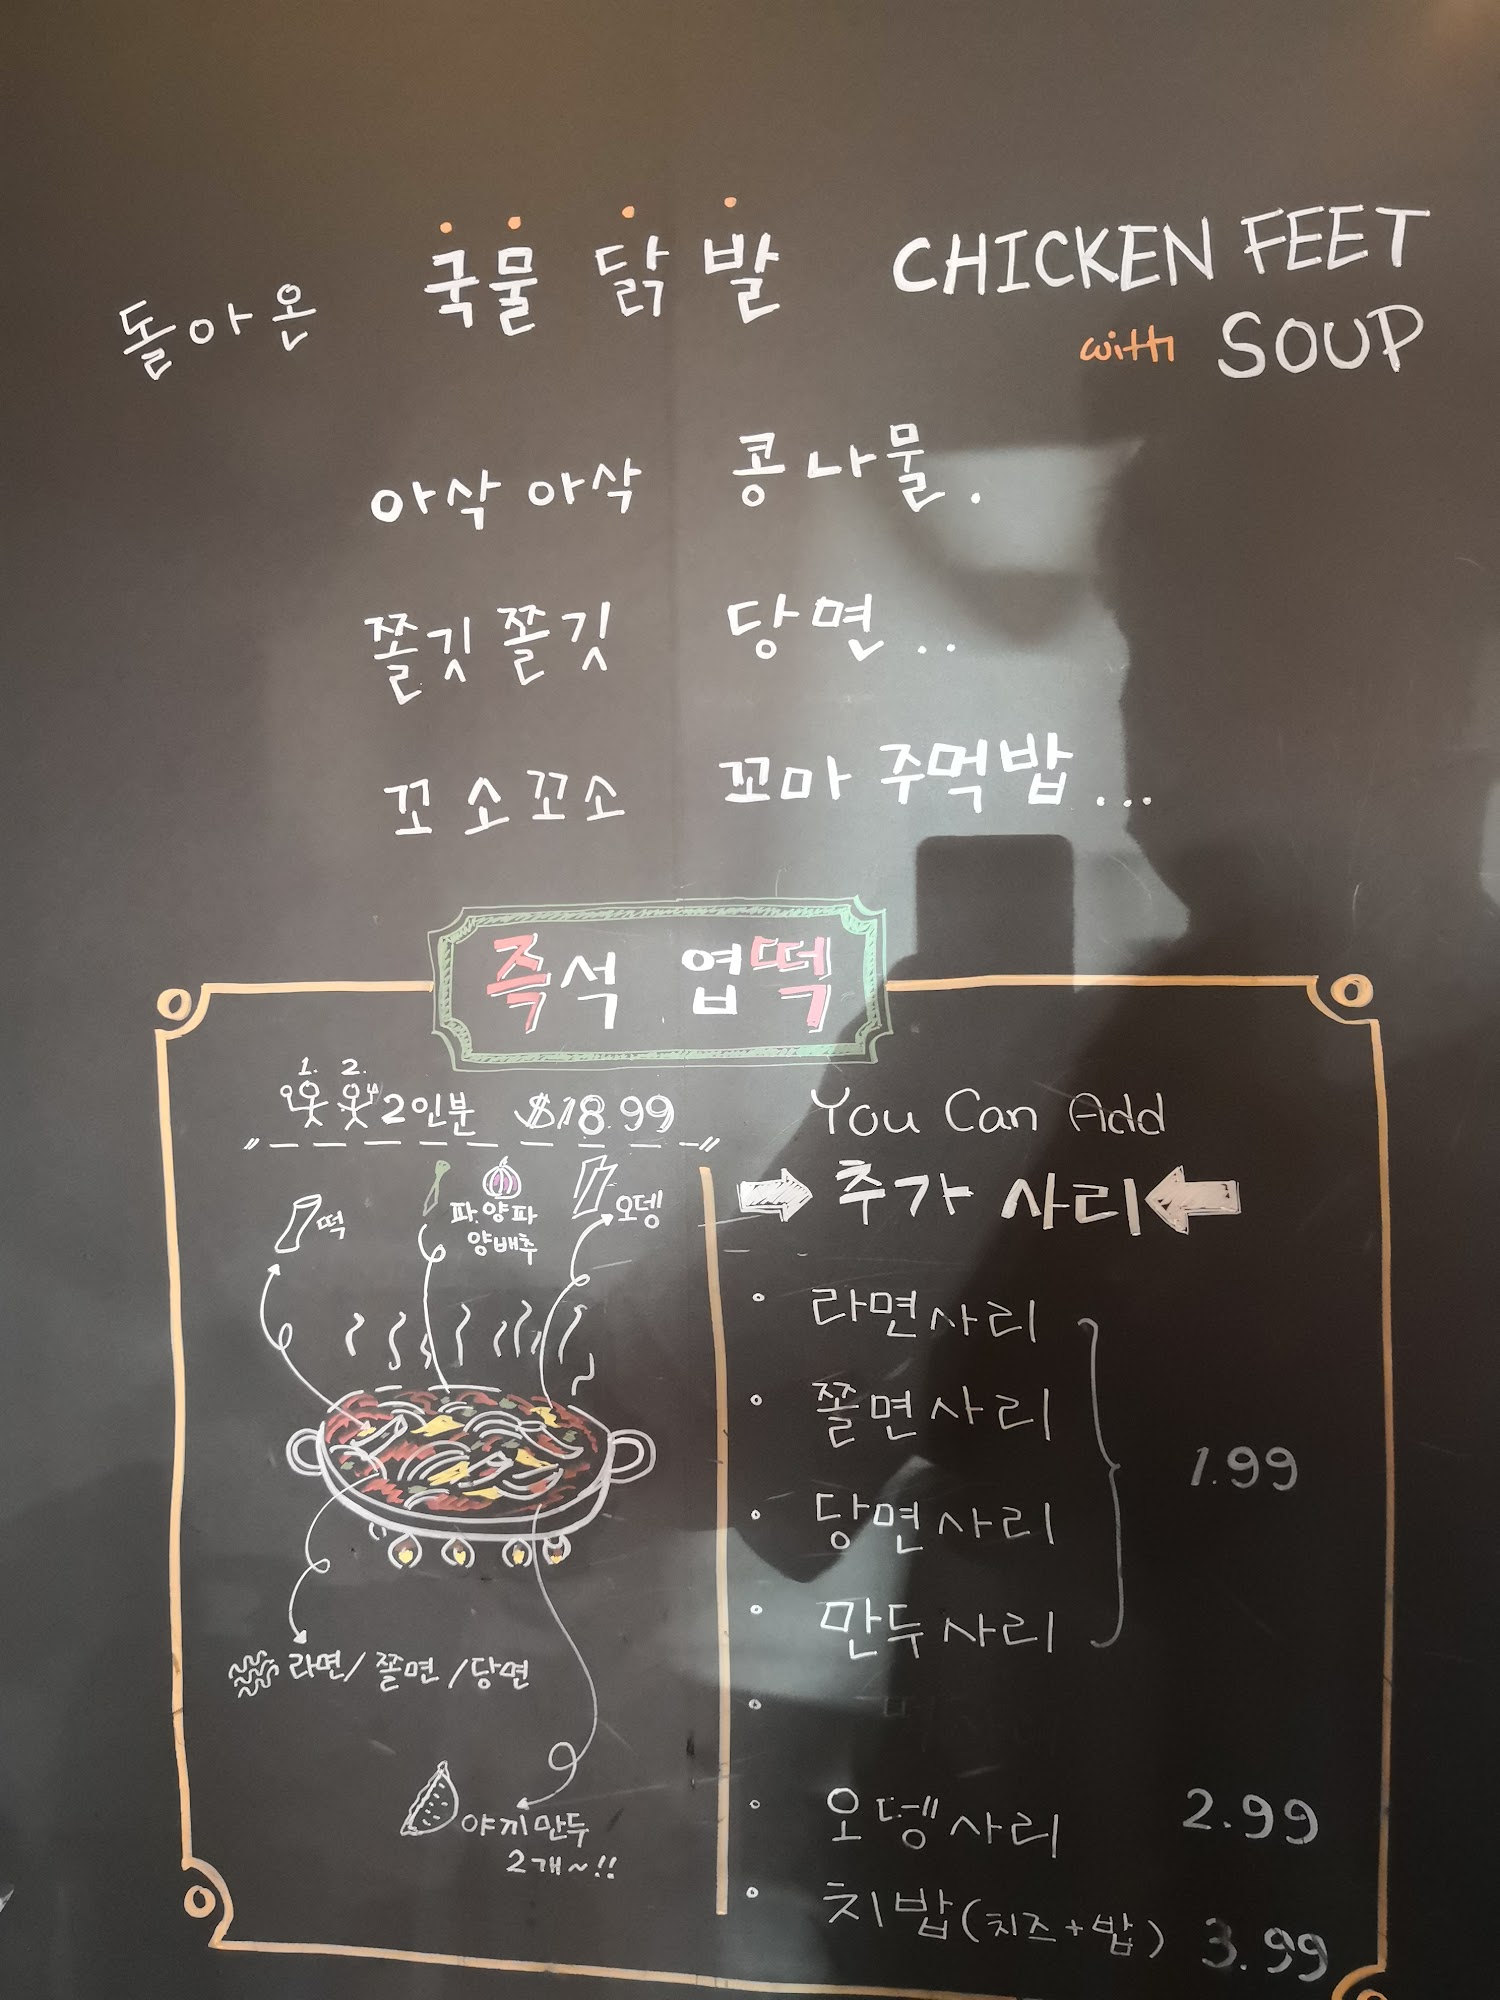 돌아온 국물 닭 발 CHICKEN FEET
with SOUP
아삭아삭 콩나물.
쫄깃쫄깃 당면..
꼬소꼬소 꼬마 주먹밥...
즉석 엽떡
1. 2.
2인분 $18.99
떡
파.양파
양배추
오뎅
라면/쫄면/당면
야끼만두
2개~!!
You Can Add
추가 사리
라면사리
쫄면사리
당면사리
만두사리
1.99
오뎅사리 2.99
치밥(치즈+밥) 3.99